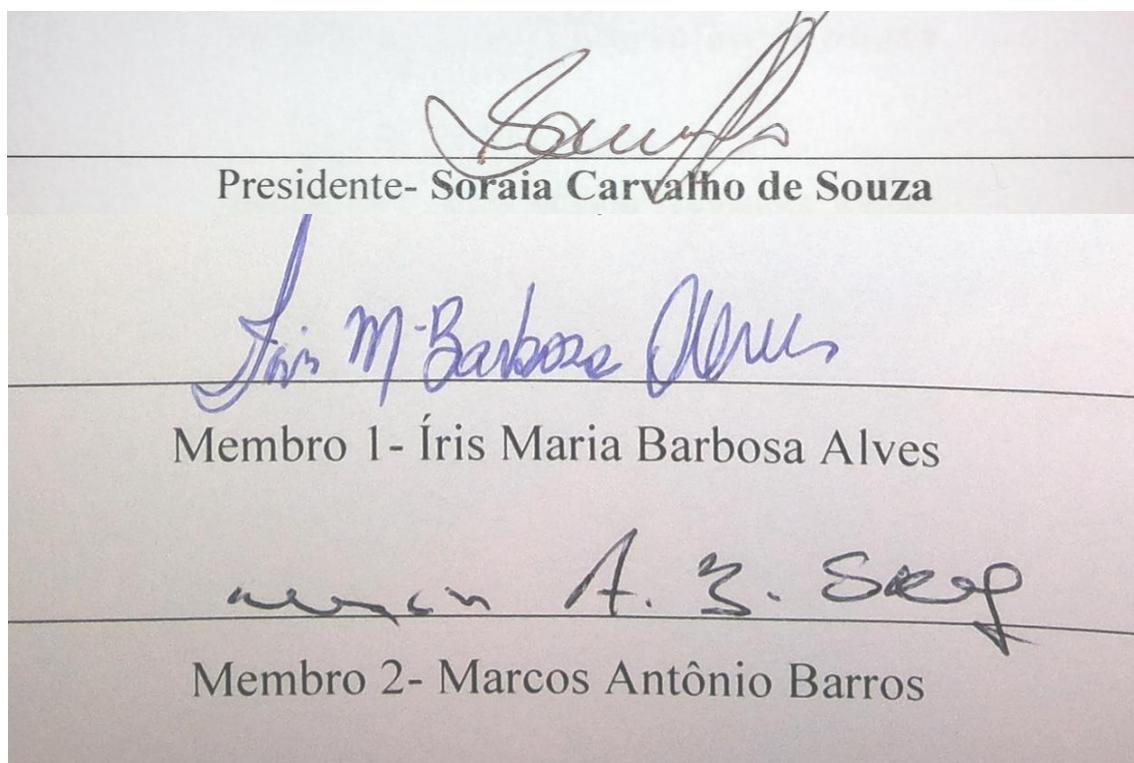 Presidente- Soraia Carvalho de Souza
Íris M. Barbosa Alves
Membro 1- Íris Maria Barbosa Alves
A. B.
Membro 2- Marcos Antônio Barros